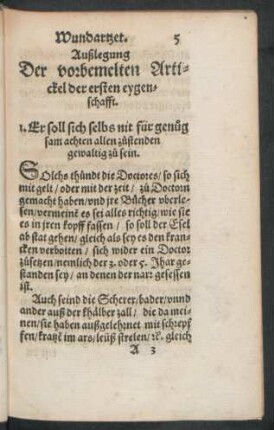 Wundartzet. 5
Außlegung
Der vorbemelten Arti-
ckel der ersten eygen-
schafft.
1. Er soll sich selbs nit für genüg
sam achten allen züstenden
gewaltig zů sein.
SOlchs thůndt die Doctores / so sich
mit gelt / oder mit der zeit / zů Doctorn
gemacht haben / vnd jre Bücher vberle-
sen / vermeinē es sei alles richtig / wie sie
es in jren kopff fassen / so soll der Esel
ab stat gehen / gleich als sey es den kran-
cken verbotten / sich wider ein Doctor
zůsetzen / nemlich der 3. oder 5. Jhar ge-
standen sey / an denen der narr gesessen
ist.
Auch seind die Scherer / bader / vnnd
ander auß der khälber zall / die da mei-
nen / sie haben außgelehrnet mit schrepf
fen / kratzē im ars / leüß strelen / ꝛc. gleich
A 3